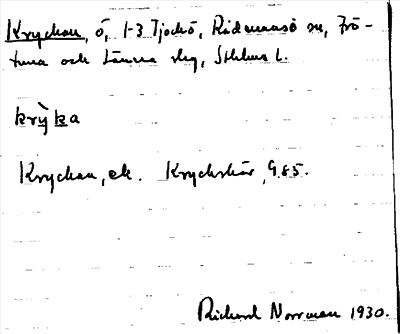 Krychan, ö, 1-3 Tjockö, Rådmansö sn, Frö-
tuna och Länna slg, Sthlms l.
krỳka
Krychan, ek. Krychskär, G.85.
Richard Norrman 1930.